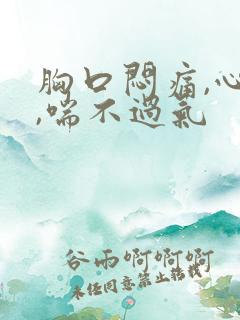 胸口悶痛,心
,喘不過氣
谷雨啊啊啊
未经同意禁止转载